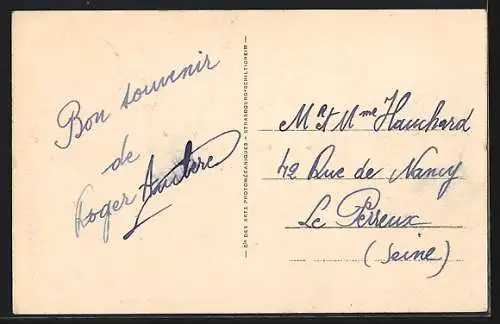 Bon souvenir
de
Roger
Cie DES ARTS PHOTOMÉCANIQUES - STRASBOURG-SCHILTIGHEIM
Mr et Mme Hauchard
42 Rue de Nancy
Le Perreux
(Seine)